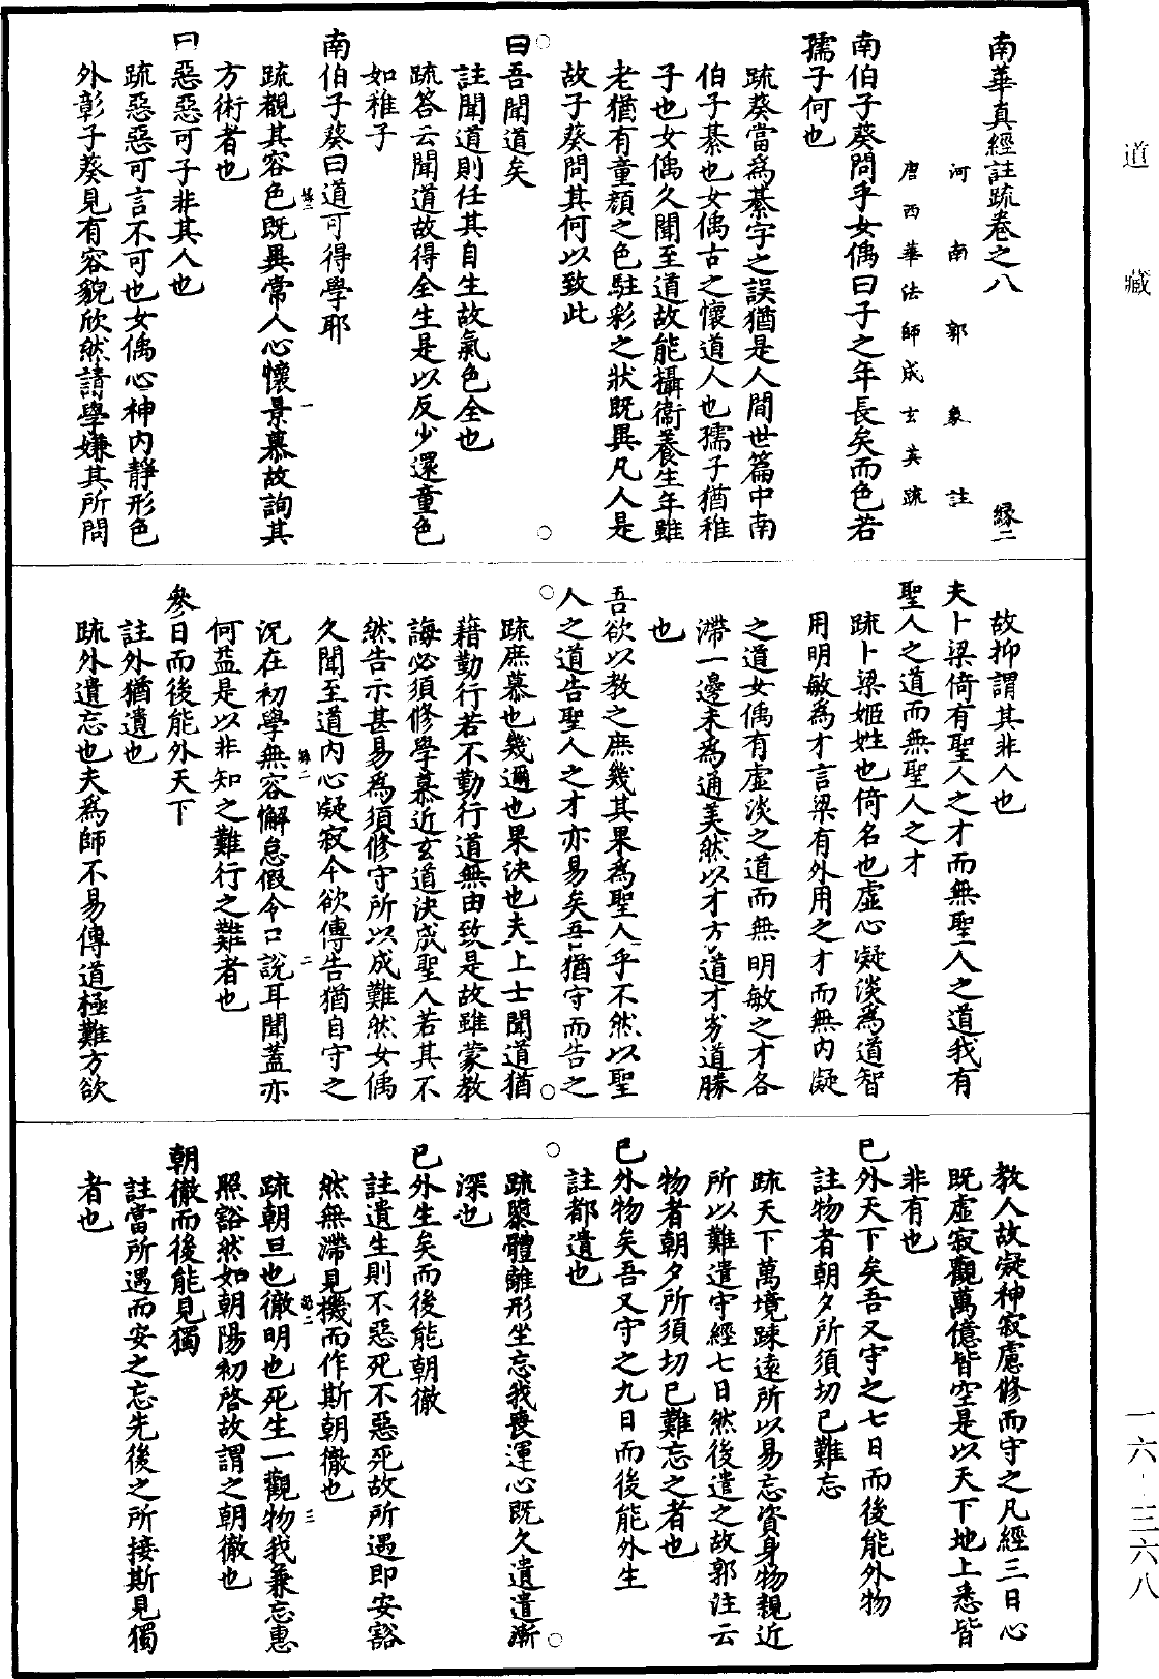 道藏
南華真經註疏卷之八
緣二
河南郭象註
唐西華法師成玄英疏
南伯子葵問乎女偊曰子之年長矣而色若
孺子何也
疏葵當為綦字之誤猶是人間世篇中南
伯子綦也女偊古之懷道人也孺子猶稚
子也女偊久聞至道故能攝衛養生年雖
老猶有童顏之色駐彩之狀既異凡人是
故子葵問其何以致此
曰吾聞道矣
註聞道則任其自生故氣色全也
疏答云聞道故得全生是以反少還童色
如稚子
南伯子葵曰道可得學耶
緣二
一
疏覩其容色既異常人心懷景慕故詢其
方術者也
曰惡惡可子非其人也
疏惡惡可言不可也女偊心神內靜形色
外彰子葵見有容貌欣然請學嫌其所問
故抑謂其非人也
夫卜梁倚有聖人之才而無聖人之道我有
聖人之道而無聖人之才
疏卜梁姬姓也倚名也虛心凝淡為道智
用明敏為才言梁有外用之才而無內凝
之道女偊有虛淡之道而無明敏之才各
滯一邊未為通美然以才方道才劣道勝
也
吾欲以教之庶幾其果為聖人乎不然以聖
人之道告聖人之才亦易矣吾猶守而告之
疏庶慕也幾邇也果決也夫上士聞道猶
藉勤行若不勤行道無由致是故雖蒙教
誨必須修學慕近玄道決成聖人若其不
然告示甚易為須修守所以成難然女偊
久聞至道內心凝寂今欲傳告猶自守之
緣二
二
況在初學無容懈怠假令口說耳聞蓋亦
何益是以非知之難行之難者也
參日而後能外天下
註外猶遺也
疏外遺忘也夫為師不易傳道極難方欲
教人故凝神寂慮修而守之凡經三日心
既虛寂觀萬億皆空是以天下地上悉皆
非有也
已外天下矣吾又守之七日而後能外物
註物者朝夕所須切已難忘
疏天下萬境踈遠所以易忘資身物親近
所以難遺守經七日然後遺之故郭注云
物者朝夕所須切已難忘之者也
已外物矣吾又守之九日而後能外生
註都遺也
疏隳體離形坐忘我喪運心既久遺遣漸
深也
已外生矣而後能朝徹
註遺生則不惡死不惡死故所遇即安豁
然無滯見機而作斯朝徹也
緣二
三
疏朝旦也徹明也死生一觀物我兼忘惠
照豁然如朝陽初啓故謂之朝徹也
朝徹而後能見獨
註當所遇而安之忘先後之所接斯見獨
者也
一六·三六八